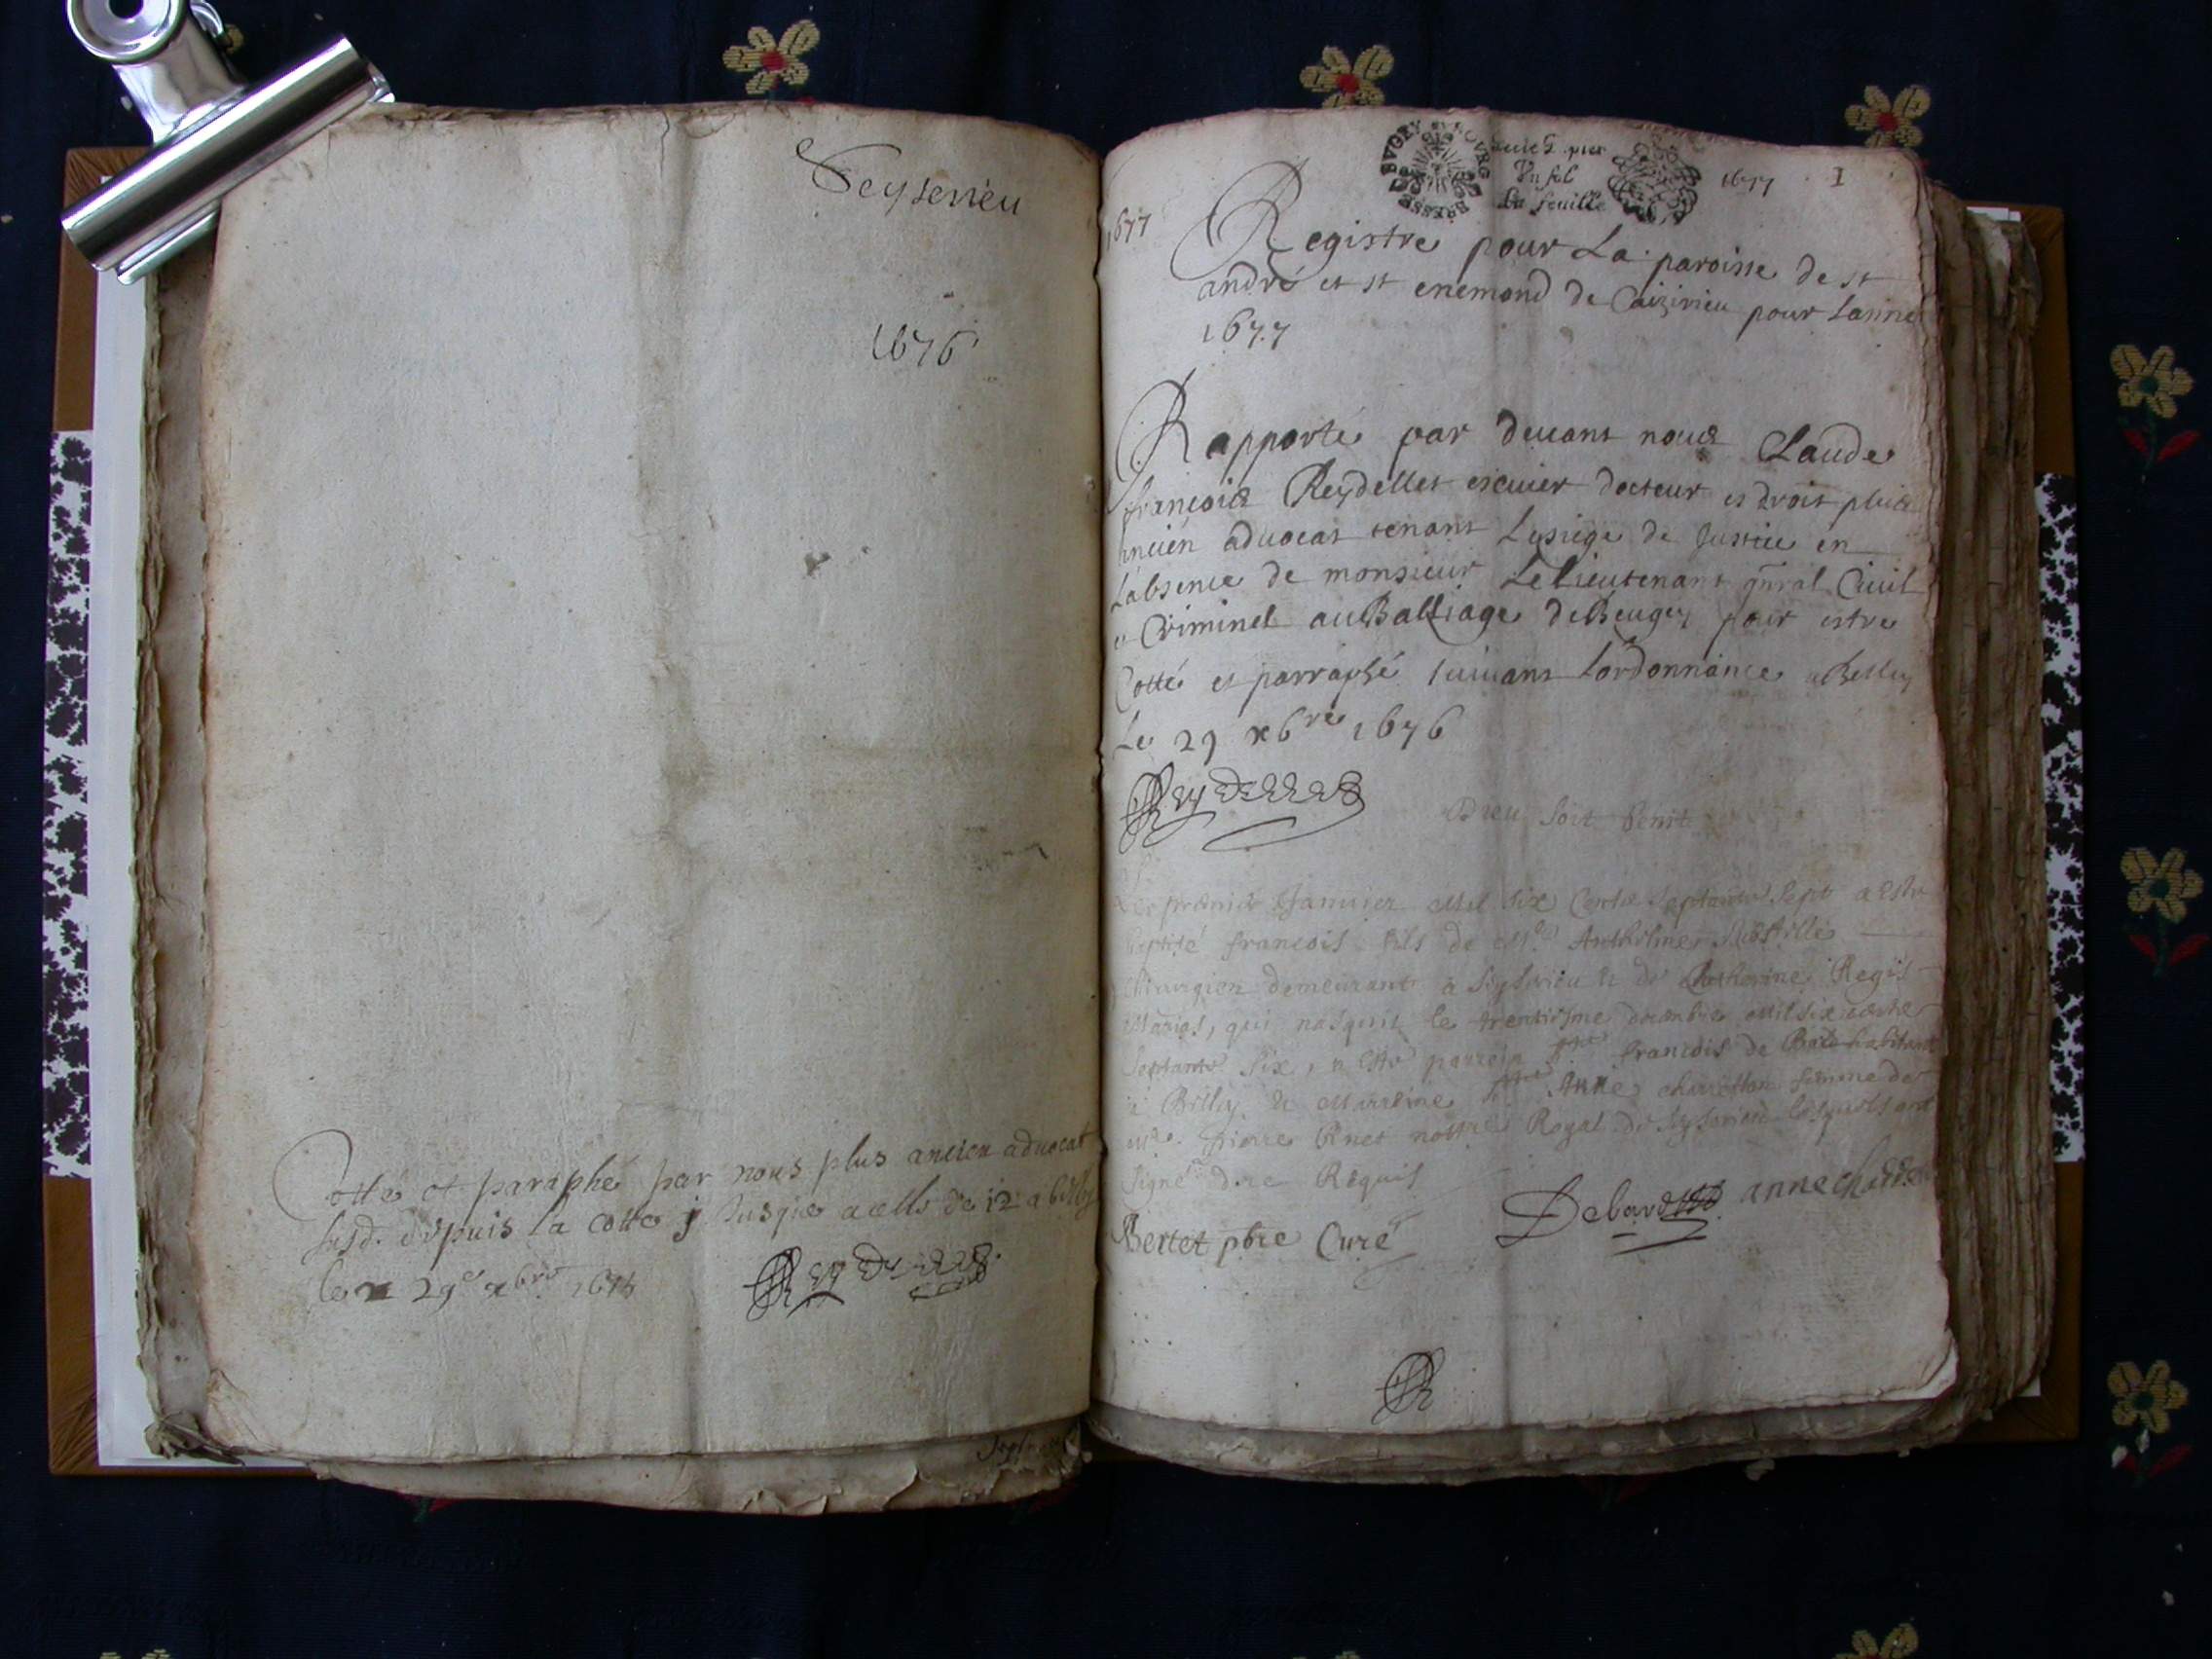 Seyserieu
1676
Cotté et paraphé par nous plus ancien aduocat
susd. depuis la cotte j jusque a celle de 12 a belley
le 29e xbre 1676
BVGEY
BRESSE
Vn sol
La feuille
1677
I
1677
Registre pour La paroisse de st
andré et st enemond de Caizirieu pour Lanne
1677
Rapporté par deuant nous Claude
françois Reydellet escuier docteur es droit plus
ancien aduocat tenant Le siege de Justice en
Labsence de monsieur Le Lieutenant gnral Ciuil
et Criminel au Balliage de Beugey pour estre
Cotté et parraphé suiuant Lordonnance a Belley
Le 29 xbre 1676
Reydellet
Dieu soit benit
Le premier Januier Mil six Cents septante sept a este
baptisé francois fils de Me Anthelme
chirurgien demeurant a Seyserieu et de Catherine Regis
Mariés, qui nasquit le trentiesme decembre Mil six cents
septante six, a esté parrein francois de habitant
a Belley et Marreine Anne femme de
Me. pierre notre Royal de Seyserieu lesquels ont
signé de ce Requis
Debardesso anne
Bertet pbre Curé